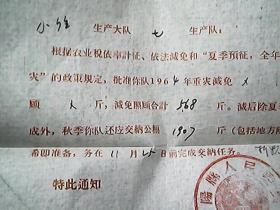 小 生产大队 七 生产队:
根据农业税依率計征、依法减免和“夏季預征，全年
灾”的政策規定，批准你队1964年重灾减免 x
顾 x 斤，减免照顾合計 568 斤。减后除夏
成外，秋季你队还应交納公糧 1907 斤(包括地方
希即准备，务在11月25日前完成交納任务。
特此通知
县人民